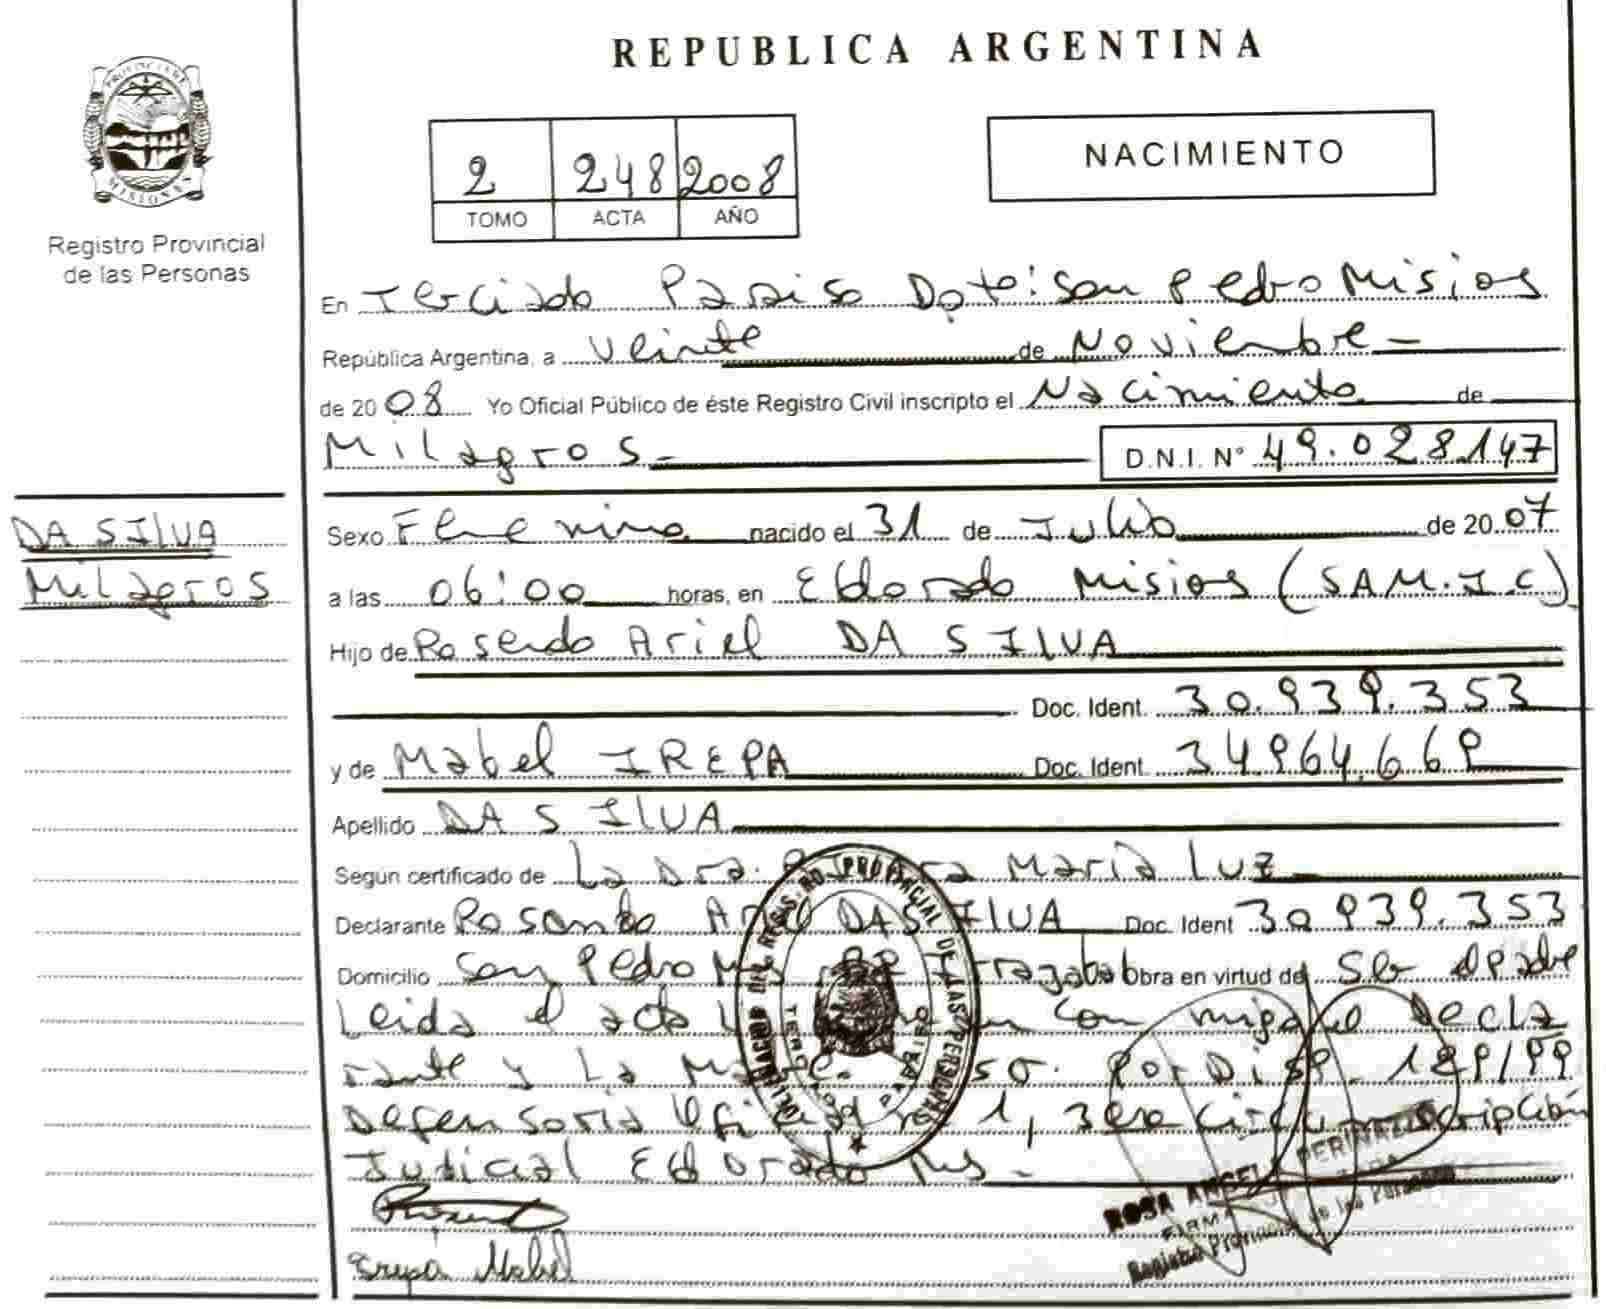 REPUBLICA ARGENTINA
PROVINCIA DE
MISIONES
Registro Provincial
de las Personas
2 248 2008
TOMO ACTA AÑO
NACIMIENTO
En Terciado Paraiso Dpto: San Pedro Misiones
República Argentina, a Veinte de Noviembre
de 2008 Yo Oficial Público de éste Registro Civil inscripto el Nacimiento de
Milagros D.N.I. N° 49.028.147
DA SILVA
Milagros
Sexo Femenino nacido el 31 de Julio de 2007
a las 06:00 horas, en Eldorado Misiones (SAM.I.C)
Hijo de Rosendo Ariel DA SILVA
Doc. Ident. 30.939.353
y de Mabel IREPA Doc. Ident. 34.964.669
Apellido DA SILVA
Según certificado de La Dra. Maria Luz
Declarante Rosendo Ariel DA SILVA Doc. Ident 30.939.353
Domicilio San Pedro Obra en virtud de Ser el padre
Leida el acta con migo el Decla
rante y La Madre. Por Disp. 199/99
Defensoria Oficial N° 1, 3era Circunscripción
Judicial Eldorado Ms.
Irepa Mabel
ROSA
Registro Provincial de las Personas